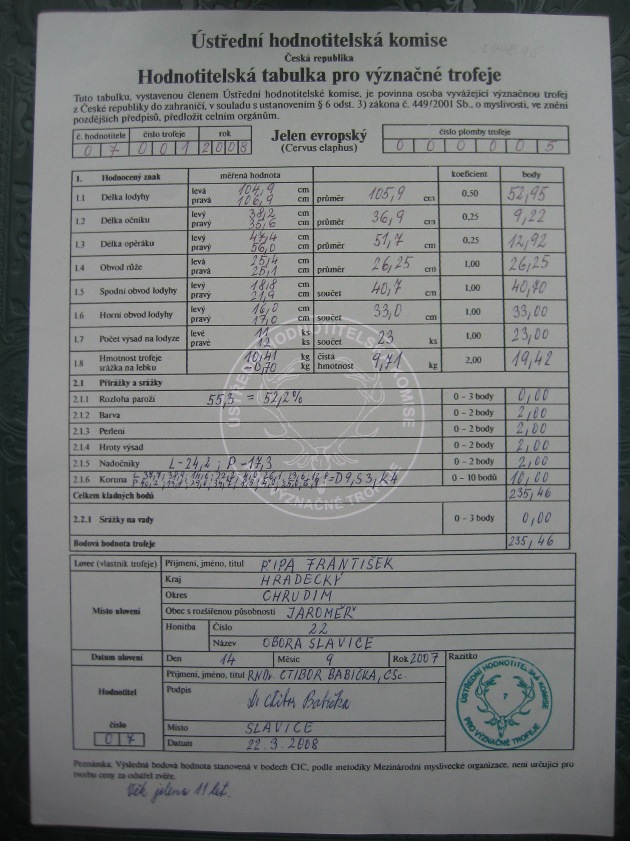 Ústřední hodnotitelská komise
Česká republika
Hodnotitelská tabulka pro význačné trofeje
Tuto tabulku, vystavenou členem Ústřední hodnotitelské komise, je povinna osoba vyvážející význačnou trofej
z České republiky do zahraničí, v souladu s ustanovením § 6 odst. 3) zákona č. 449/2001 Sb., o myslivosti, ve znění
pozdějších předpisů, předložit celním orgánům.
č. hodnotitele číslo trofeje rok Jelen evropský číslo plomby trofeje
0 7 0 0 1 2 0 0 8 (Cervus elaphus) 0 0 0 0 0 5
1. Hodnocený znak měřená hodnota koeficient body
1.1 Délka lodyhy levá 104,9 cm průměr 105,9 cm 0,50 52,95
pravá 106,9 cm
1.2 Délka očníku levý 38,2 cm průměr 36,9 cm 0,25 9,22
pravý 35,6 cm
1.3 Délka opěráku levý 47,4 cm průměr 51,7 cm 0,25 12,92
pravý 56,0 cm
1.4 Obvod růže levá 25,4 cm průměr 26,25 cm 1,00 26,25
pravá cm
1.5 Spodní obvod lodyhy levý 18,8 cm součet 40,7 cm 1,00 40,70
pravý 21,9 cm
1.6 Horní obvod lodyhy levý 16,0 cm součet 33,0 cm 1,00 33,00
pravý 17,0 cm
1.7 Počet výsad na lodyze levé 11 ks součet 23 ks 1,00 23,00
pravé 12 ks
1.8 Hmotnost trofeje 10,41 kg čistá 9,71 kg 2,00 19,42
srážka na lebku 0,70 kg hmotnost
2.1 Přirážky a srážky
2.1.1 Rozloha paroží 55,3 = 52,2% 0 – 3 body 0,00
2.1.2 Barva 0 – 2 body 2,00
2.1.3 Perlení 0 – 2 body 2,00
2.1.4 Hroty výsad 0 – 2 body 2,00
2.1.5 Nadočníky L-24,2; P-17,3 0 – 2 body 2,00
2.1.6 Koruna = D9, S3, K4 0 – 10 bodů 10,00
Celkem kladných bodů 235,46
2.2.1 Srážky na vady 0 – 3 body 0,00
Bodová hodnota trofeje 235,46
Lovec (vlastník trofeje) Příjmení, jméno, titul PIPA FRANTIŠEK
Místo ulovení Kraj HRADECKÝ
Okres CHRUDIM
Obec s rozšířenou působností JAROMĚŘ
Honitba Číslo 22
Název OBORA SLAVICE
Datum ulovení Den 14 Měsíc 9 Rok 2007 Razítko
Hodnotitel Příjmení, jméno, titul RNDr. CTIBOR BABIČKA, CSc.
Podpis Dr Ctibor Babička
číslo 0 7 Místo SLAVICE
Datum 22.3.2008
ÚSTŘEDNÍ HODNOTITELSKÁ KOMISE
7
PRO VÝZNAČNÉ TROFEJE
Poznámka: Výsledná bodová hodnota stanovená v bodech CIC, podle metodiky Mezinárodní myslivecké organizace, není určující pro
tvorbu ceny za odstřel zvěře.
Věk jelena 11 let.